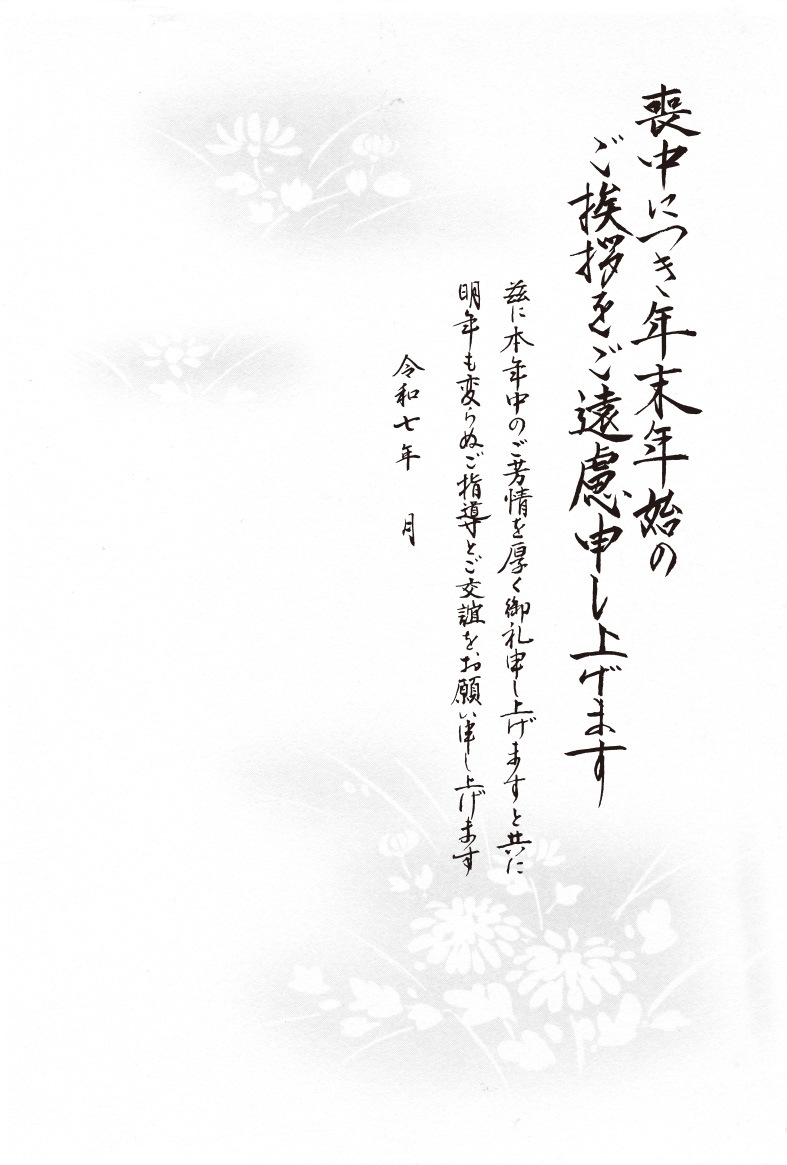 喪中につき年末年始の
ご挨拶をご遠慮申し上げます
茲に本年中のご芳情を厚く御礼申し上げますと共に
明年も変らぬご指導とご交誼をお願い申し上げます
令和七年　月